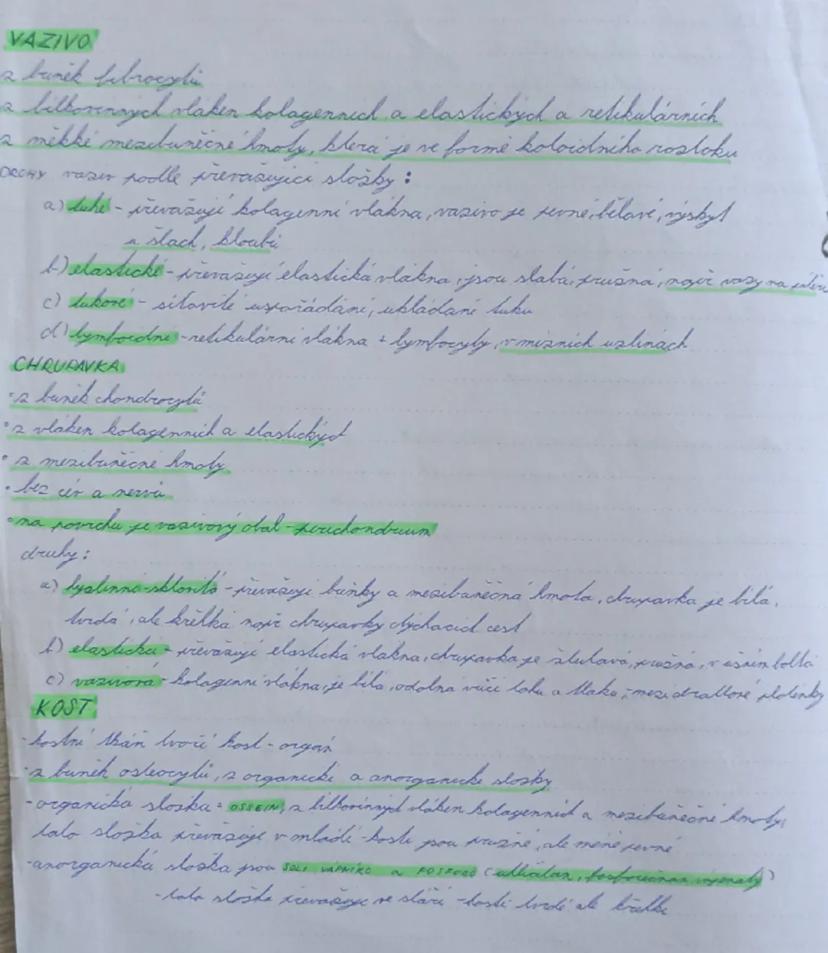 VAZIVO
z buněk fibrocytů
z bílkovinných vláken kolagenních a elastických a retikulárních
z měkké mezibuněčné hmoty, která je ve formě koloidního roztoku
DRUHY vaziv podle převažující složky:
a) tuhé - převažují kolagenní vlákna, vazivo je pevné, bělavé, výskyt
u šlach, kloubů
b) elastické - převažují elastická vlákna, jsou slabá, pružná, např vazy na páteři
c) tukové - síťovité uspořádání, ukládání tuku
d) lymfoidní - retikulární vlákna + lymfocyty, v mízních uzlinách
CHRUPAVKA
• z buněk chondrocytů
• z vláken kolagenních a elastických
• z mezibuněčné hmoty
• bez cév a nervů
• na povrchu je vazivový obal - perichondrium
druhy:
a) hyalinní-sklovitá - převažují buňky a mezibuněčná hmota, chrupavka je bílá,
tvrdá, ale křehká např chrupavky dýchacích cest
b) elastická - převažují elastická vlákna, chrupavka je žlutavá, pružná, v ušním boltci
c) vazivová - kolagenní vlákna, je bílá, odolná vůči tahu a tlaku, meziobratlové ploténky
KOST
- kostní tkáň tvoří kost - orgán
- z buněk osteocytů, z organické a anorganické složky
- organická složka = OSSEIN, z bílkovinných vláken kolagenních a mezibuněčné hmoty,
tato složka převažuje v mládí - kosti jsou pružné, ale méně pevné
- anorganická složka jsou SOLI VÁPNÍKU a FOSFORU (uhličitan, fosforečnan vápenatý)
- tato složka převažuje ve stáří - kosti tvrdé ale křehké